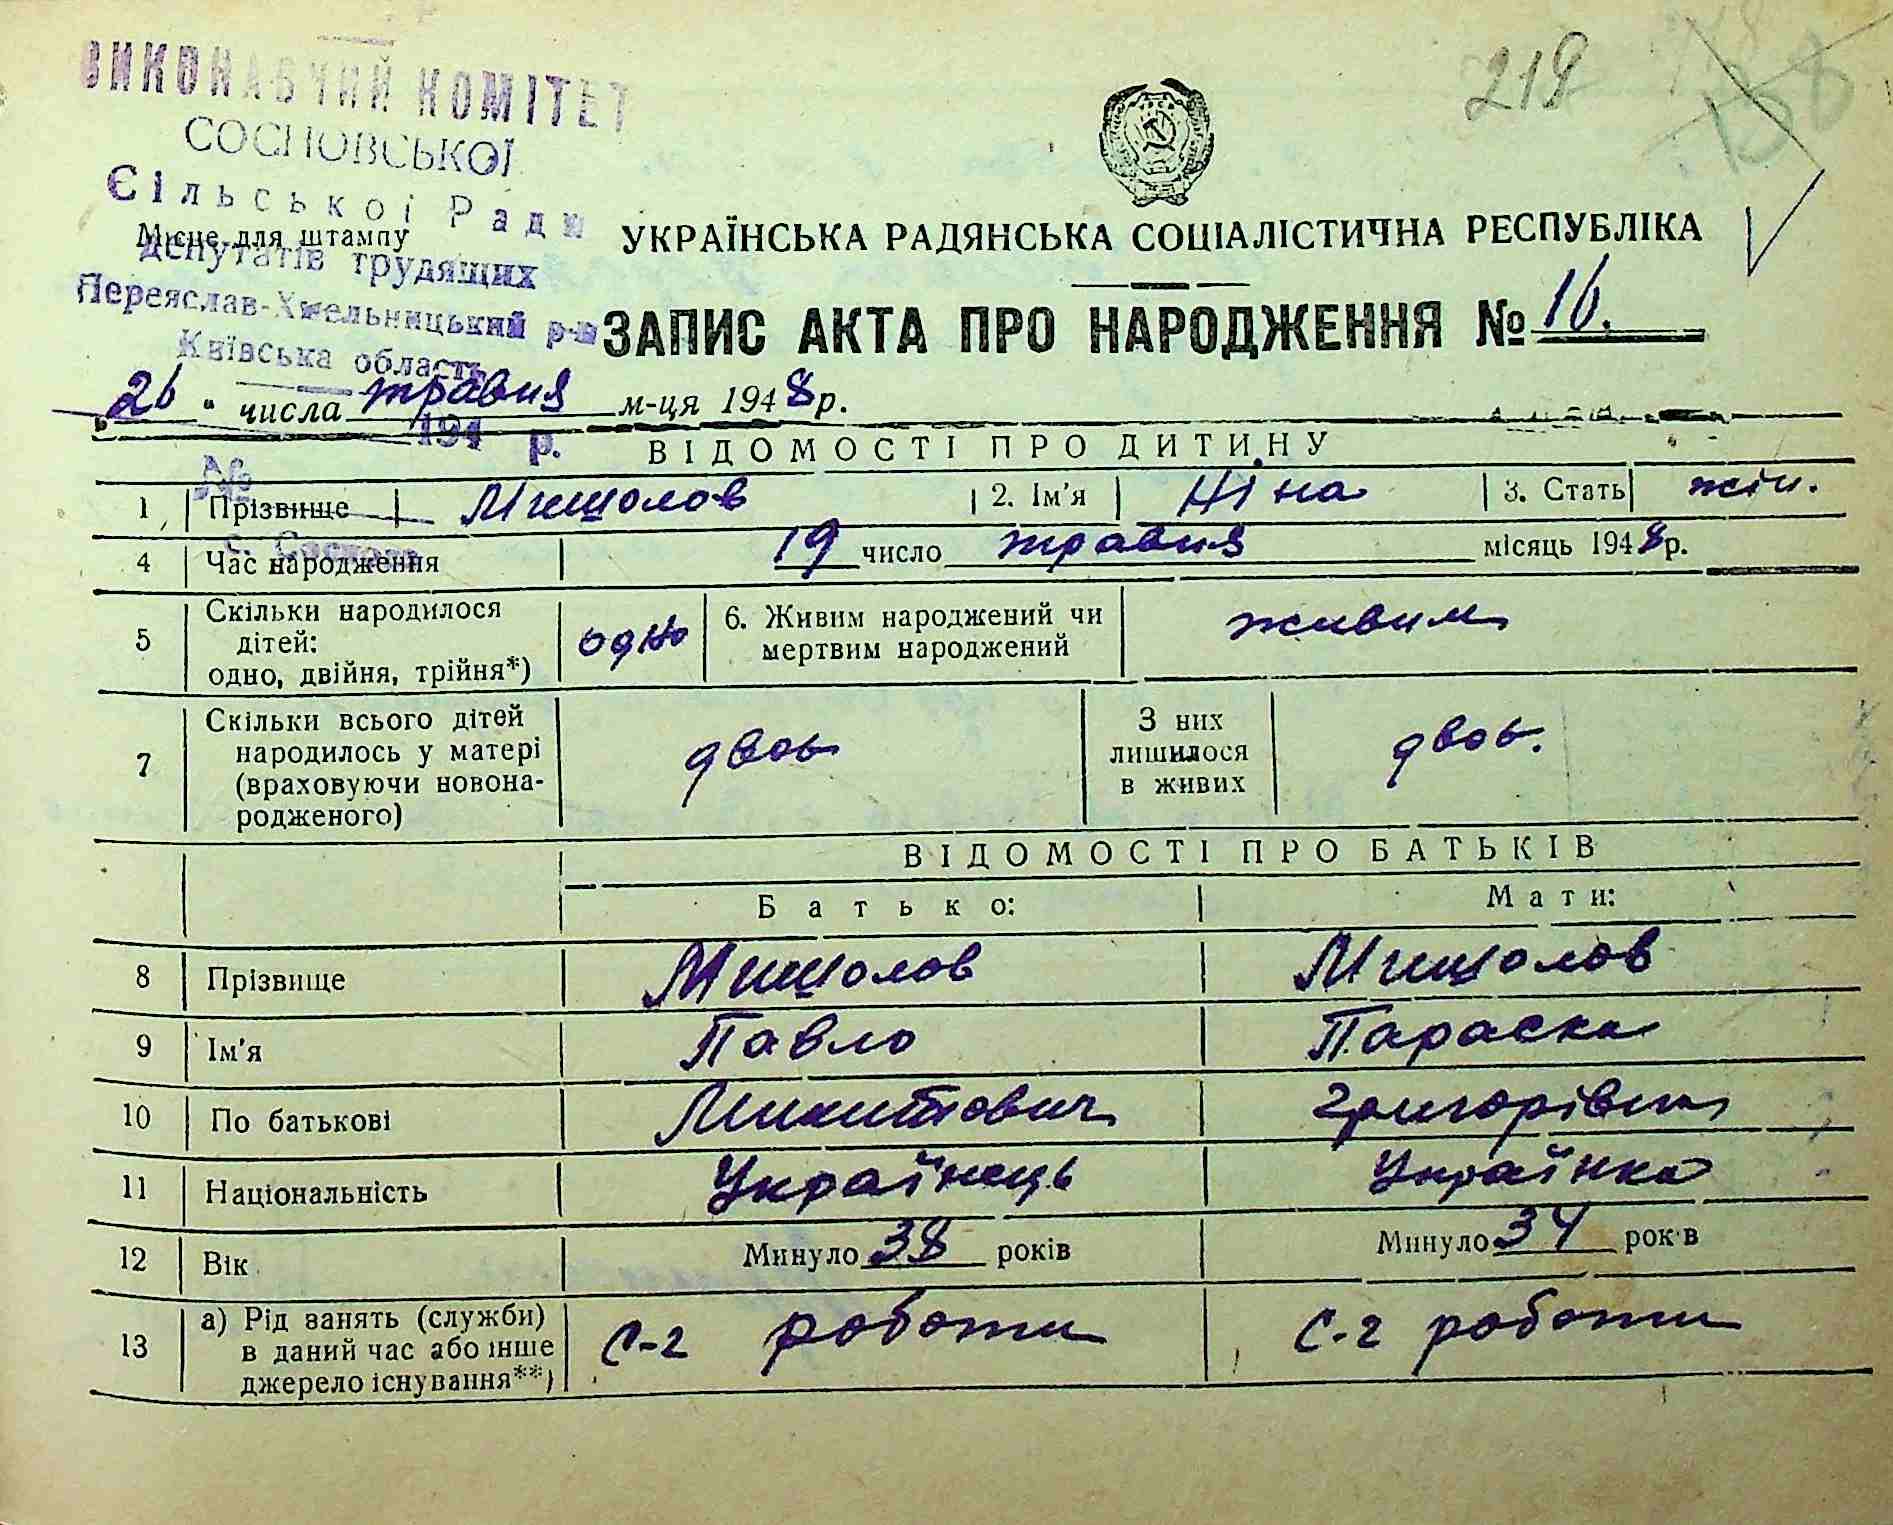 ВИКОНАВЧИЙ КОМІТЕТ
СОСНОВСЬКОЇ
Сільської Ради
Місце для штампу
депутатів трудящих
Переяслав-Хмельницький р-н
Київська область
194 р.
№
с. Соснова
219
УКРАЇНСЬКА РАДЯНСЬКА СОЦІАЛІСТИЧНА РЕСПУБЛІКА
ЗАПИС АКТА ПРО НАРОДЖЕННЯ № 16.
26 " числа травня м-ця 1948 р.
ВІДОМОСТІ ПРО ДИТИНУ
1 Прізвище Мишолов 2. Ім'я Ніна 3. Стать жін.
4 Час народження 19 число травня місяць 1948 р.
5 Скільки народилося дітей: одно, двійня, трійня*) одно 6. Живим народжений чи мертвим народжений живим
7 Скільки всього дітей народилось у матері (враховуючи новона-родженого) двоє З них лишилося в живих двоє.
ВІДОМОСТІ ПРО БАТЬКІВ
Батько: Мати:
8 Прізвище Мишолов Мишолов
9 Ім'я Павло Параска
10 По батькові Микитович Григорівна
11 Національність Українець Українка
12 Вік Минуло 38 років Минуло 34 рок в
13 а) Рід занять (служби) в даний час або інше джерело існування**) с-г роботи с-г роботи